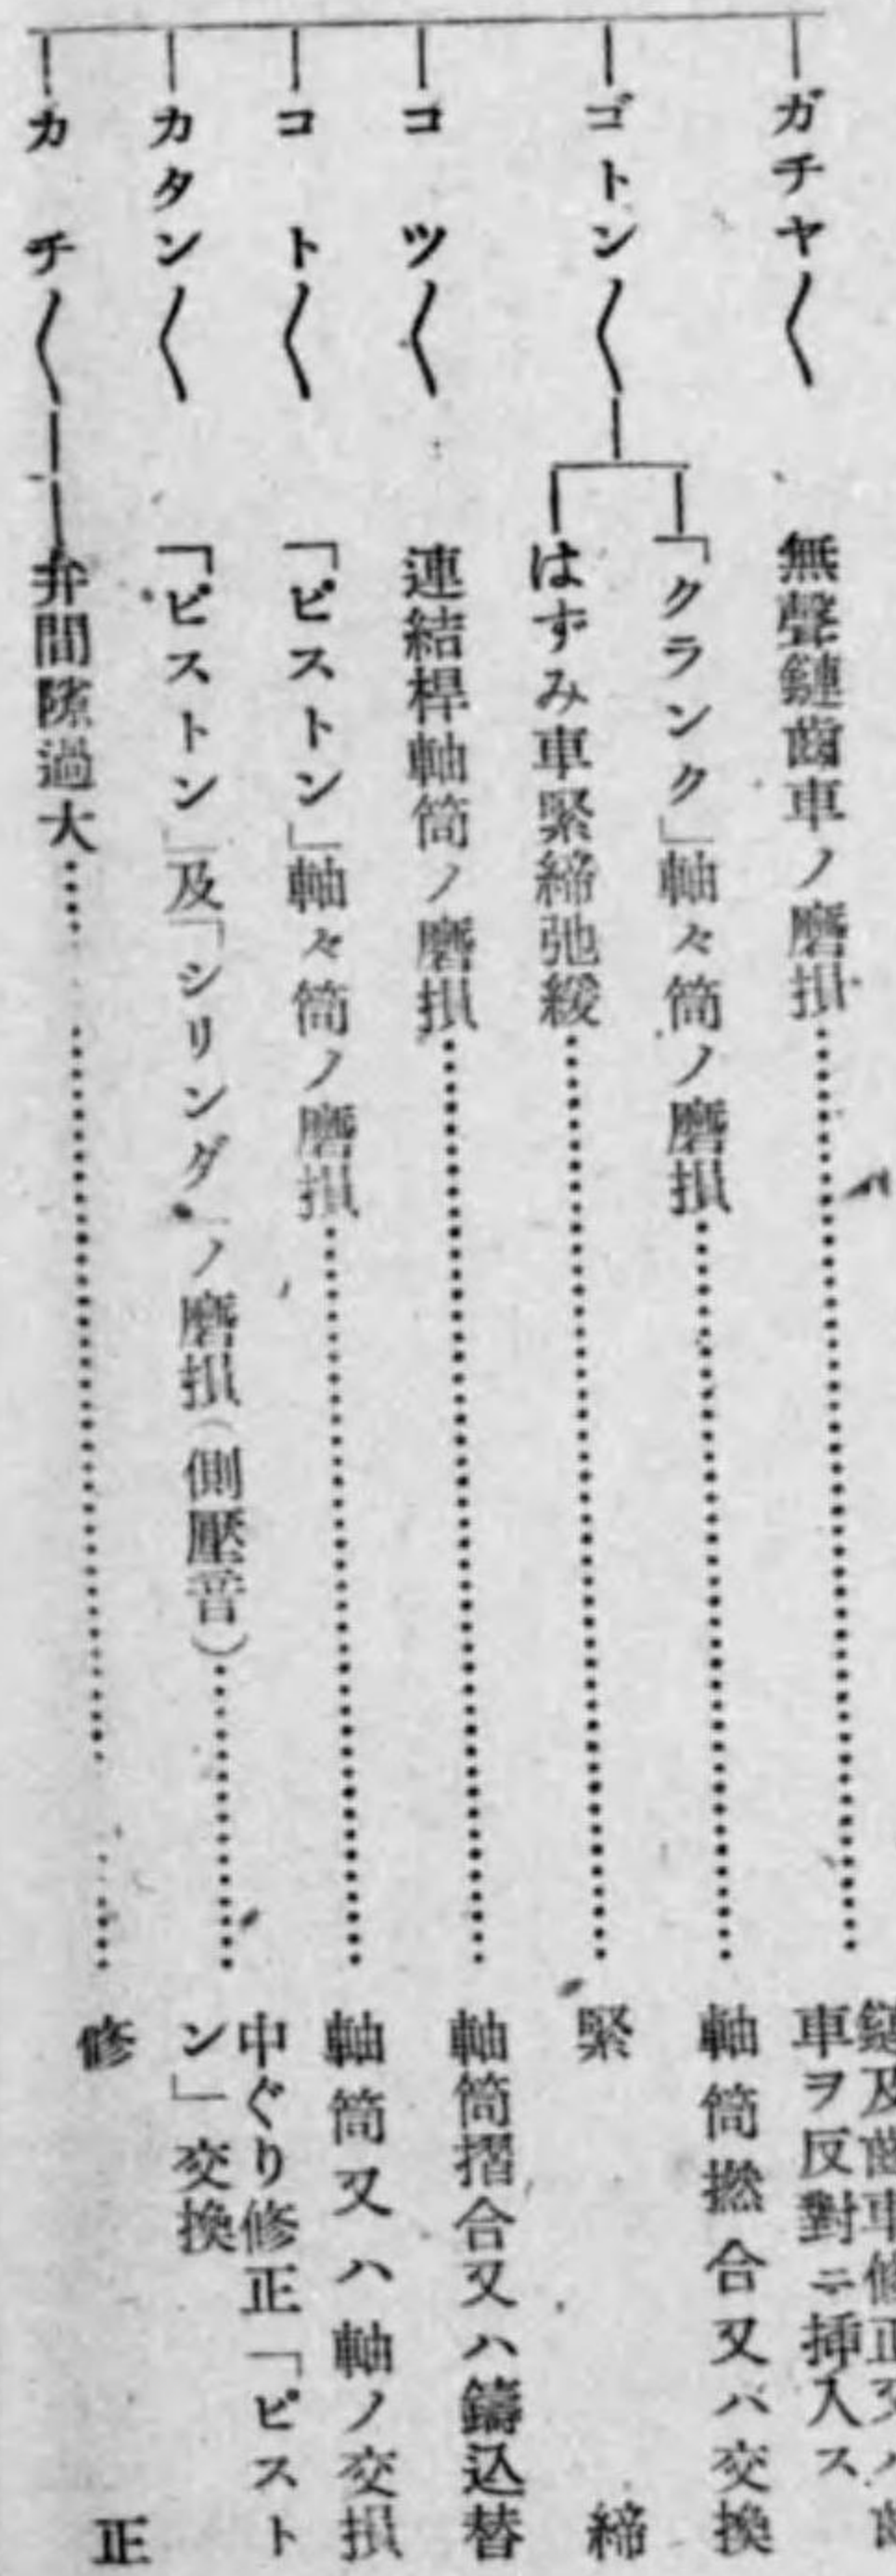 ガチヤ〱 無聲鏈齒車ノ磨損……鏈及齒車修正又ハ齒
車ヲ反對ニ挿入ス
ゴトン〱
「クランク」軸々筒ノ磨損……軸筒撚合又バ交換
はずみ車緊締弛緩……緊締
コツ〱 連結桿軸筒ノ磨損……軸筒摺合又ハ鑄込替
コト〱 「ピストン」軸々筒ノ磨損……軸筒又ハ軸ノ交損
カタン〱 「ピストン」及「シリンダ」ノ磨損(側壓音)……中ぐり修正「ピスト
ン」交換
カチ〱 弁間隙過大……修正